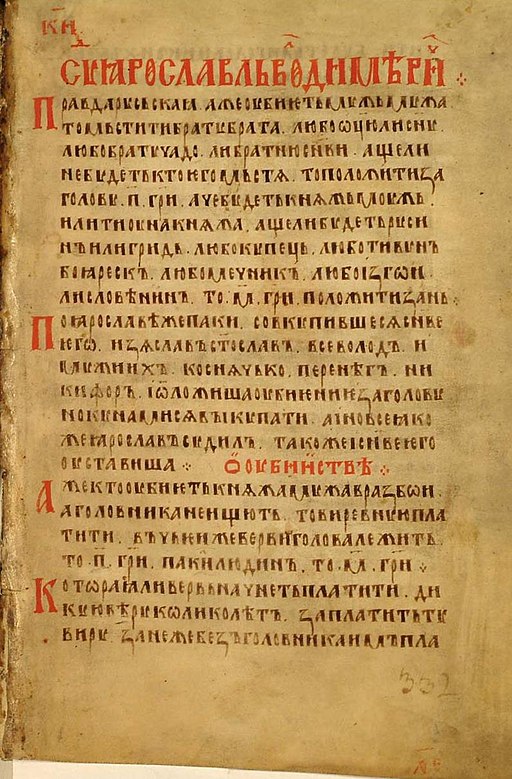 КИ
СУДЪ ЯРОСЛАВЛЬ ВОЛОДИМѢРИЧ
Правда русьская. аже оубиеть мужь мужа
то мьстити брату брата. любо ѡцю ли сну
любо брату чадо. ли братню сн҃ви. аще ли
не будеть кто иего мьстѧ. то положити за
голову. п҃. грн҃. аче будеть кнѧжь моужь
или тиоуна кнѧжа. аще ли будеть руси
нъ или гридь. любо купець. любо тивунъ
боярескъ. любо мечникъ. любо изгои.
ли словѣнинъ. то. м҃. грн҃. положити за нь.
По ярославѣ же паки. совкупившесѧ сн҃ве
иегѡ. изѧславъ ст҃ославъ. всеволодъ. и
мужи ихъ. коснѧчько. перенѣгъ. ни
кифоръ. и ѿложиша оубиение за голову
но кунами сѧ выкупати. а ино все яко
же ярославъ судилъ. такоже и сн҃ве иего
оуставиша.
Ѡ оубииствѣ
Аже кто оубиеть кнѧжа мужа в разбои.
а головника не ищють. то виревную пла
тити. въ чьеи же верви голова лежить.
то п҃. грн҃. паки людинъ. то. м҃. грн҃.
Которая ли вервь начнеть платити. ди
кую вѣру колико лѣтъ. заплатить ту
виру занеже безъ головника имъ пла
332